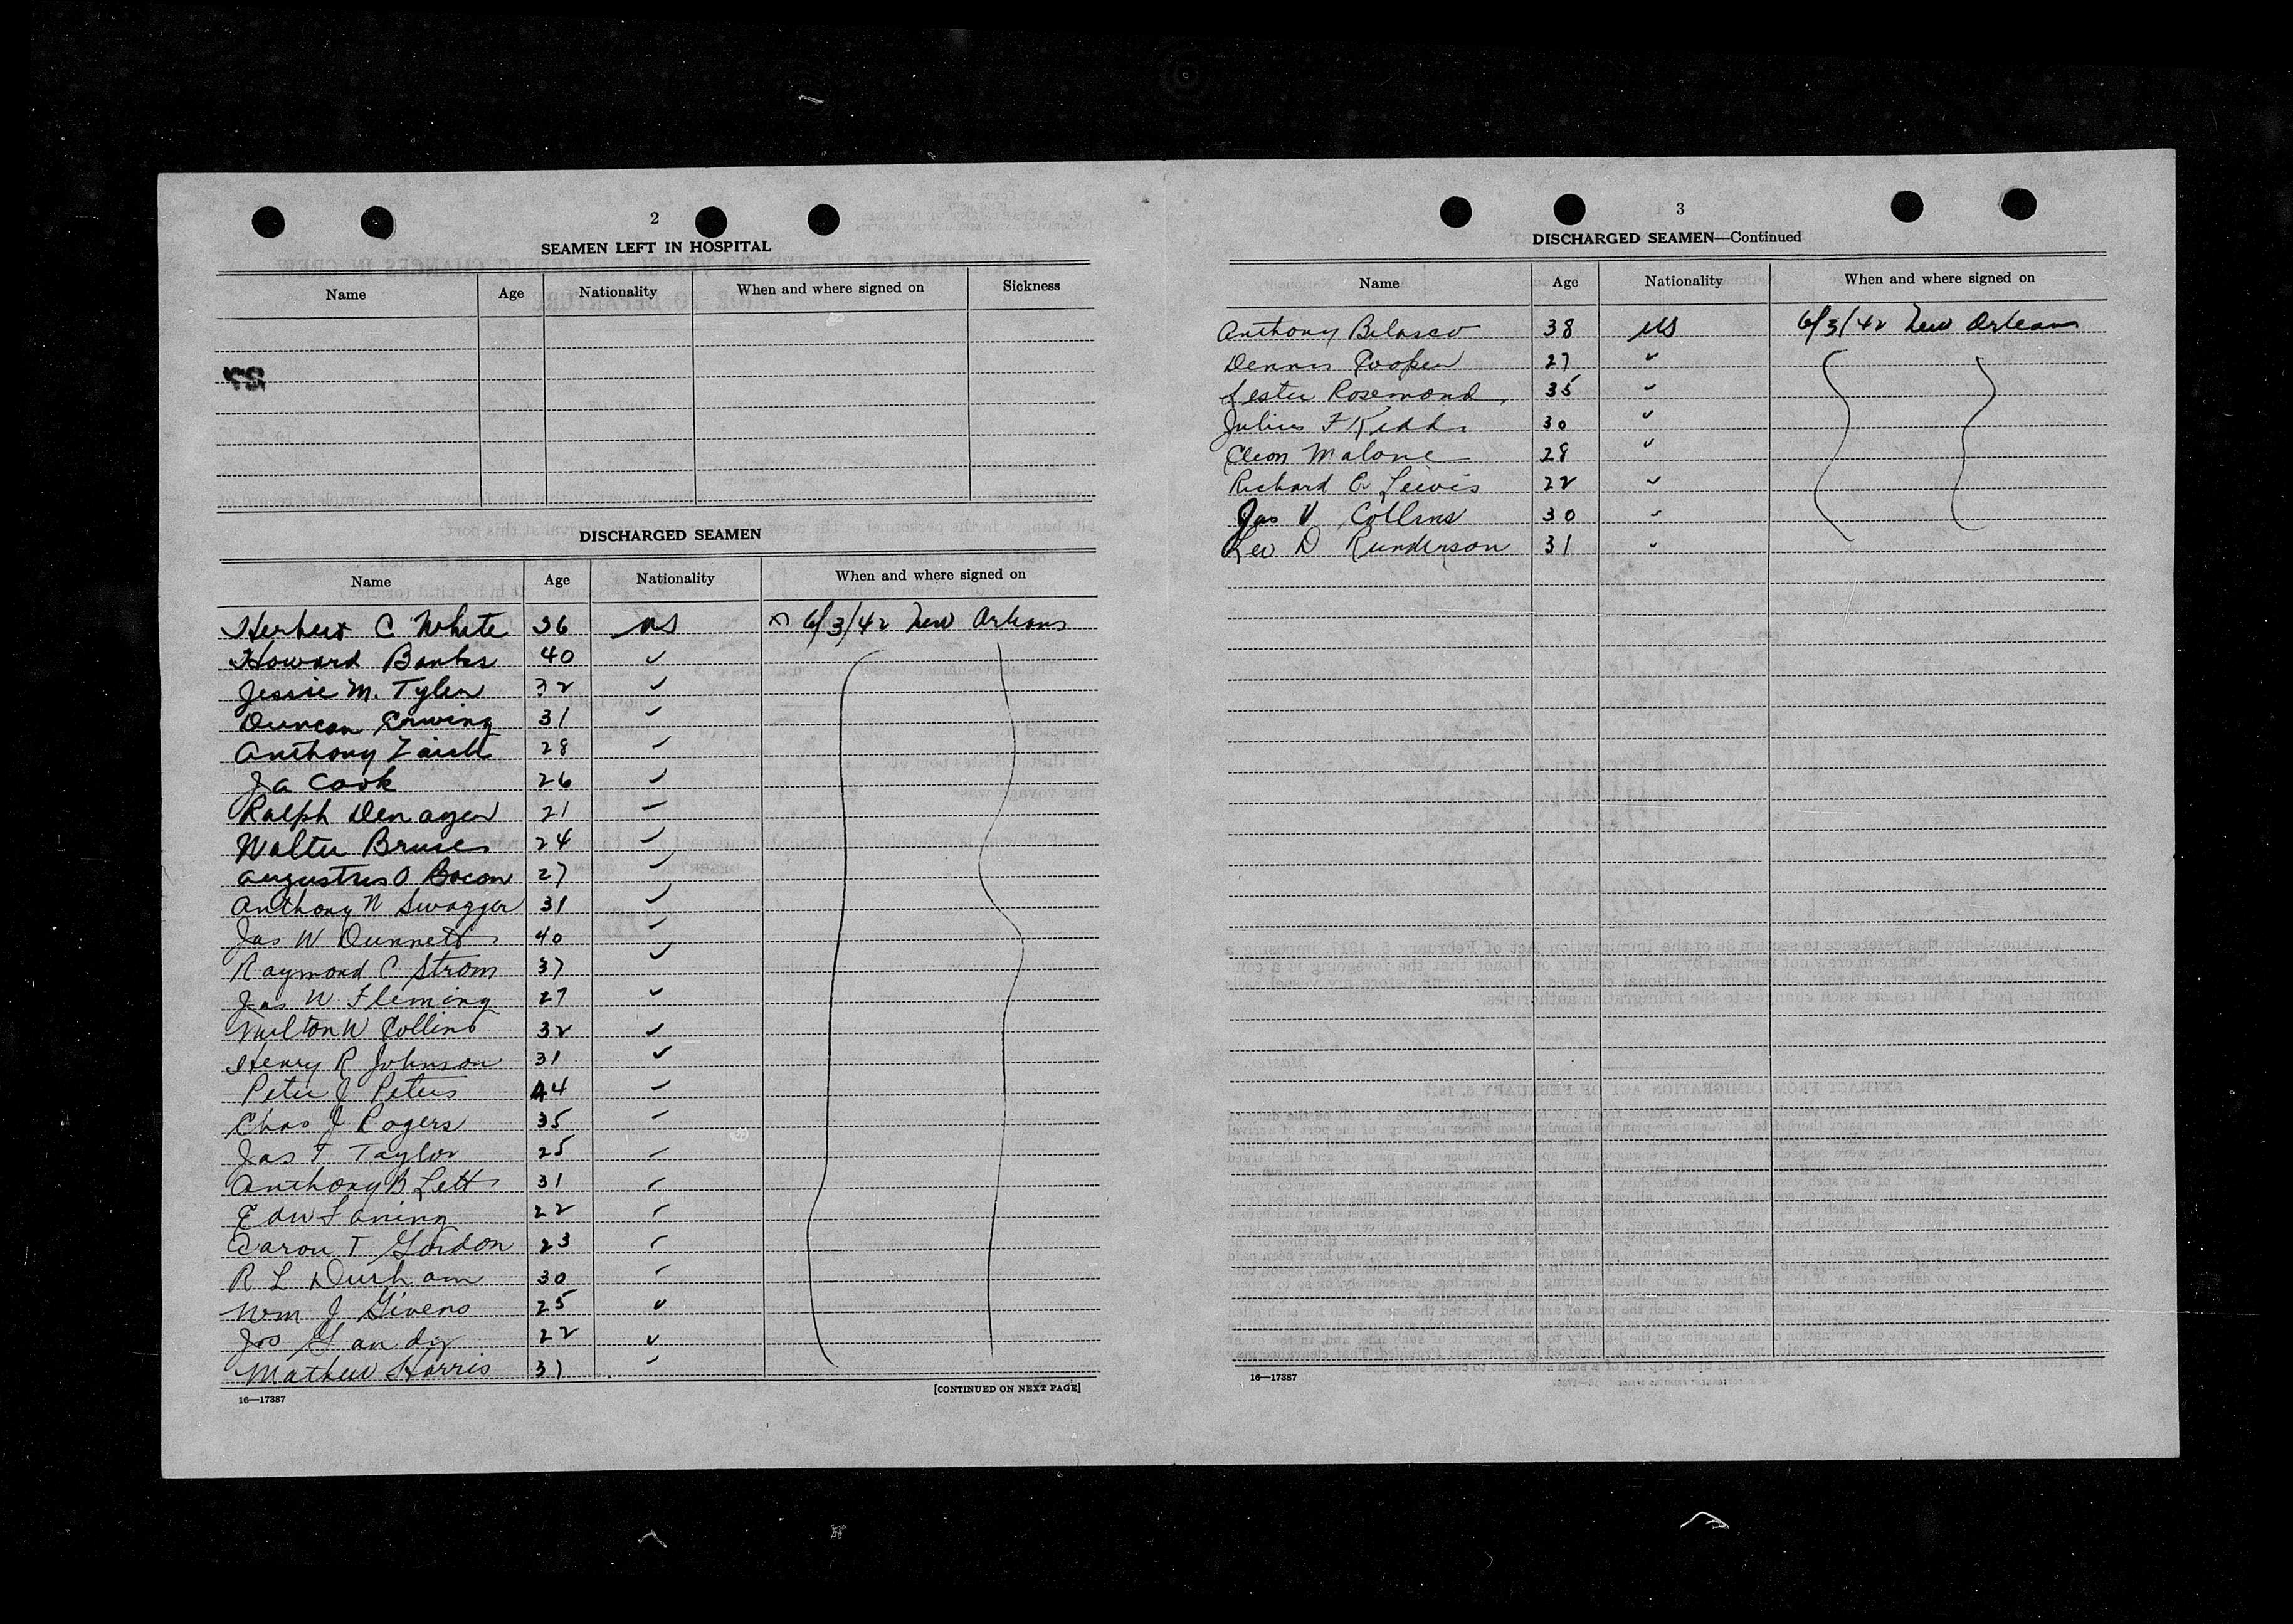 2
SEAMEN LEFT IN HOSPITAL
Name Age Nationality When and where signed on Sickness
DISCHARGED SEAMEN
Name Age Nationality When and where signed on
Herbert C White 36 US 6/3/42 New Orleans
Howard Banks 40 ✓
Jessie M. Tyler 32 ✓
Duncan 31 ✓
Anthony 28 ✓
J A Cook 26 ✓
Ralph 21 ✓
Walter Bruce 24 ✓
Augustus O Bacon 27 ✓
Anthony N Swagger 31 ✓
Jas W Dunnett 40 ✓
Raymond C Strom 37 ✓
Jas W Fleming 27 ✓
Milton W Collins 32 ✓
Henry R Johnson 31 ✓
Peter J Peters 44 ✓
Chas J Rogers 35 ✓
Jas T Taylor 25 ✓
Anthony B Lett 31 ✓
Edw Laning 22 ✓
Aaron T Gordon 23 ✓
R L Durham 30 ✓
Wm J Givens 25 ✓
Jos Gandy 22 ✓
Mathew Harris 31 ✓
16—17387
[CONTINUED ON NEXT PAGE]
3
DISCHARGED SEAMEN—Continued
Name Age Nationality When and where signed on
Anthony Belasco 38 US 6/3/42 New Orleans
Dennis Cooper 27 ✓
Lester Rosemond 35 ✓
Julius F Kidd 30 ✓
Cleon Malone 28 ✓
Richard E Lewis 22 ✓
Jas V Collins 30 ✓
Leo D Runderson 31 ✓
16—17387